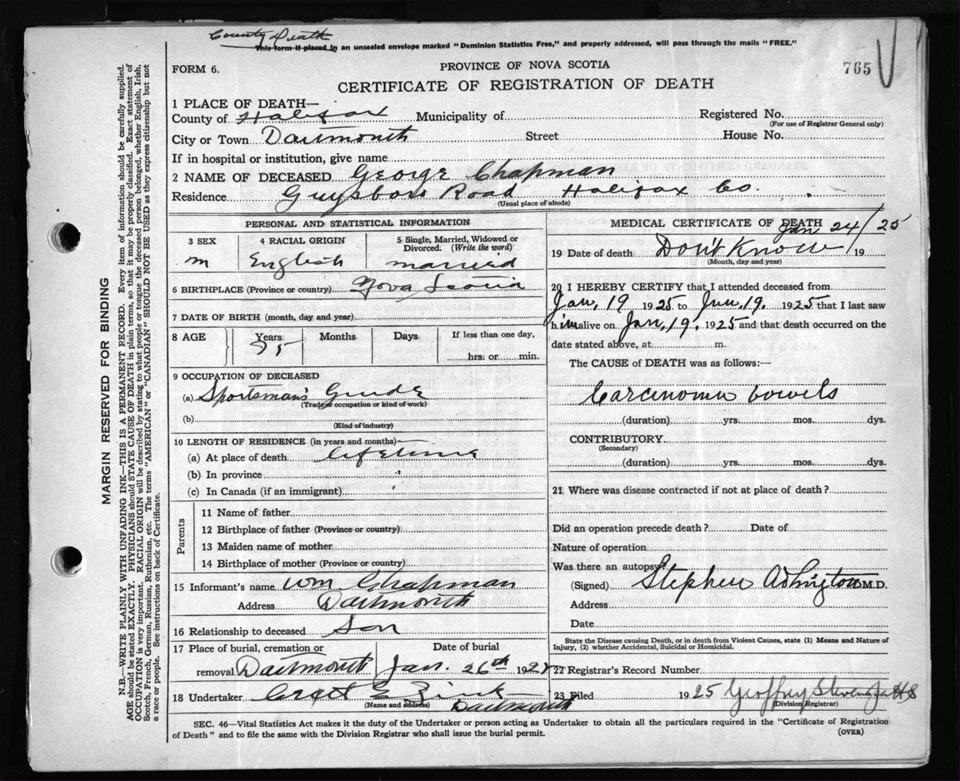 County Death
This form if placed in an unsealed envelope marked "Dominion Statistics Free," and properly addressed, will pass through the mails "FREE."
FORM 6.
PROVINCE OF NOVA SCOTIA
765
CERTIFICATE OF REGISTRATION OF DEATH
1 PLACE OF DEATH—
County of Halifax Municipality of Registered No.
(For use of Registrar General only)
City or Town Dartmouth Street House No.
If in hospital or institution, give name
2 NAME OF DECEASED George Chapman
Residence Guysboro Road Halifax Co.
(Usual place of abode)
PERSONAL AND STATISTICAL INFORMATION
3 SEX 4 RACIAL ORIGIN 5 Single, Married, Widowed or Divorced. (Write the word)
m English married
6 BIRTHPLACE (Province or country) Nova Scotia
7 DATE OF BIRTH (month, day and year)
8 AGE Years Months Days If less than one day,
75 hrs. or min.
9 OCCUPATION OF DECEASED
(a) Sportsman's Guide
(Trade or occupation or kind of work)
(b)
(Kind of industry)
10 LENGTH OF RESIDENCE (in years and months)—
(a) At place of death lifetime
(b) In province "
(c) In Canada (if an immigrant) '
Parents
11 Name of father
12 Birthplace of father (Province or country)
13 Maiden name of mother
14 Birthplace of mother (Province or country)
15 Informant's name Wm Chapman
Address Dartmouth
16 Relationship to deceased Son
17 Place of burial, cremation or Date of burial
removal Dartmouth Jan. 26th 192
18 Undertaker E Zink
(Name and address) Dartmouth
MEDICAL CERTIFICATE OF DEATH
Jan 24/25
19 Date of death Don't Know 19
(Month, day and year)
20 I HEREBY CERTIFY that I attended deceased from
Jan, 19 1925 to Jan, 19. 1925 that I last saw
him alive on Jan, 19. 1925 and that death occurred on the
date stated above, at m.
The CAUSE of DEATH was as follows:—
Carcinoma bowels
(duration) yrs. mos. dys.
CONTRIBUTORY
(Secondary)
(duration) yrs. mos. dys.
21 Where was disease contracted if not at place of death?
Did an operation precede death? Date of
Nature of operation
Was there an autopsy
(Signed) Stephen Adlington M.D.
Address
Date
State the Disease causing Death, or in death from Violent Causes, state (1) Means and Nature of
Injury, (2) whether Accidental, Suicidal or Homicidal.
22 Registrar's Record Number
23 Filed 1925 Geoffrey
(Division Registrar)
SEC. 46—Vital Statistics Act makes it the duty of the Undertaker or person acting as Undertaker to obtain all the particulars required in the "Certificate of Registration
of Death" and to file the same with the Division Registrar who shall issue the burial permit.
(OVER)
MARGIN RESERVED FOR BINDING
N.B.—WRITE PLAINLY WITH UNFADING INK—THIS IS A PERMANENT RECORD. Every item of information should be carefully supplied.
AGE should be stated EXACTLY. PHYSICIANS should STATE CAUSE OF DEATH in plain terms, so that it may be properly classified. Exact statement of
OCCUPATION is very important. RACIAL ORIGIN will be described by stating to what people or tongue the deceased person belonged, whether English, Irish,
Scotch, French, German, Russian, Ruthenian, etc. The terms "AMERICAN" or "CANADIAN" SHOULD NOT BE USED as they express citizenship but not
a race or people. See instructions on back of Certificate.